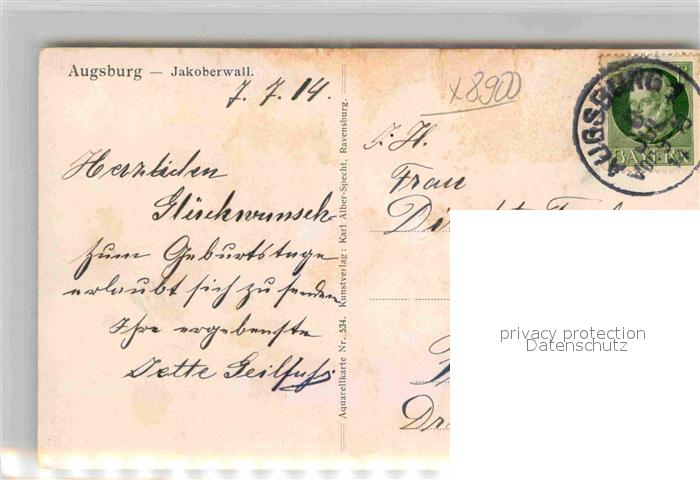 Augsburg — Jakoberwall.
7. 7. 14.
Herzlichen
Glückwunsch
zum Geburtstage
erlaubt sich zu senden
Ihre ergebenste
Dette Geilfuß
Aquarellkarte Nr. 534. Kunstverlag: Karl Alber-Specht, Ravensburg.
x8900
Frau
AUGSBURG
BAYERN
privacy protection
Datenschutz